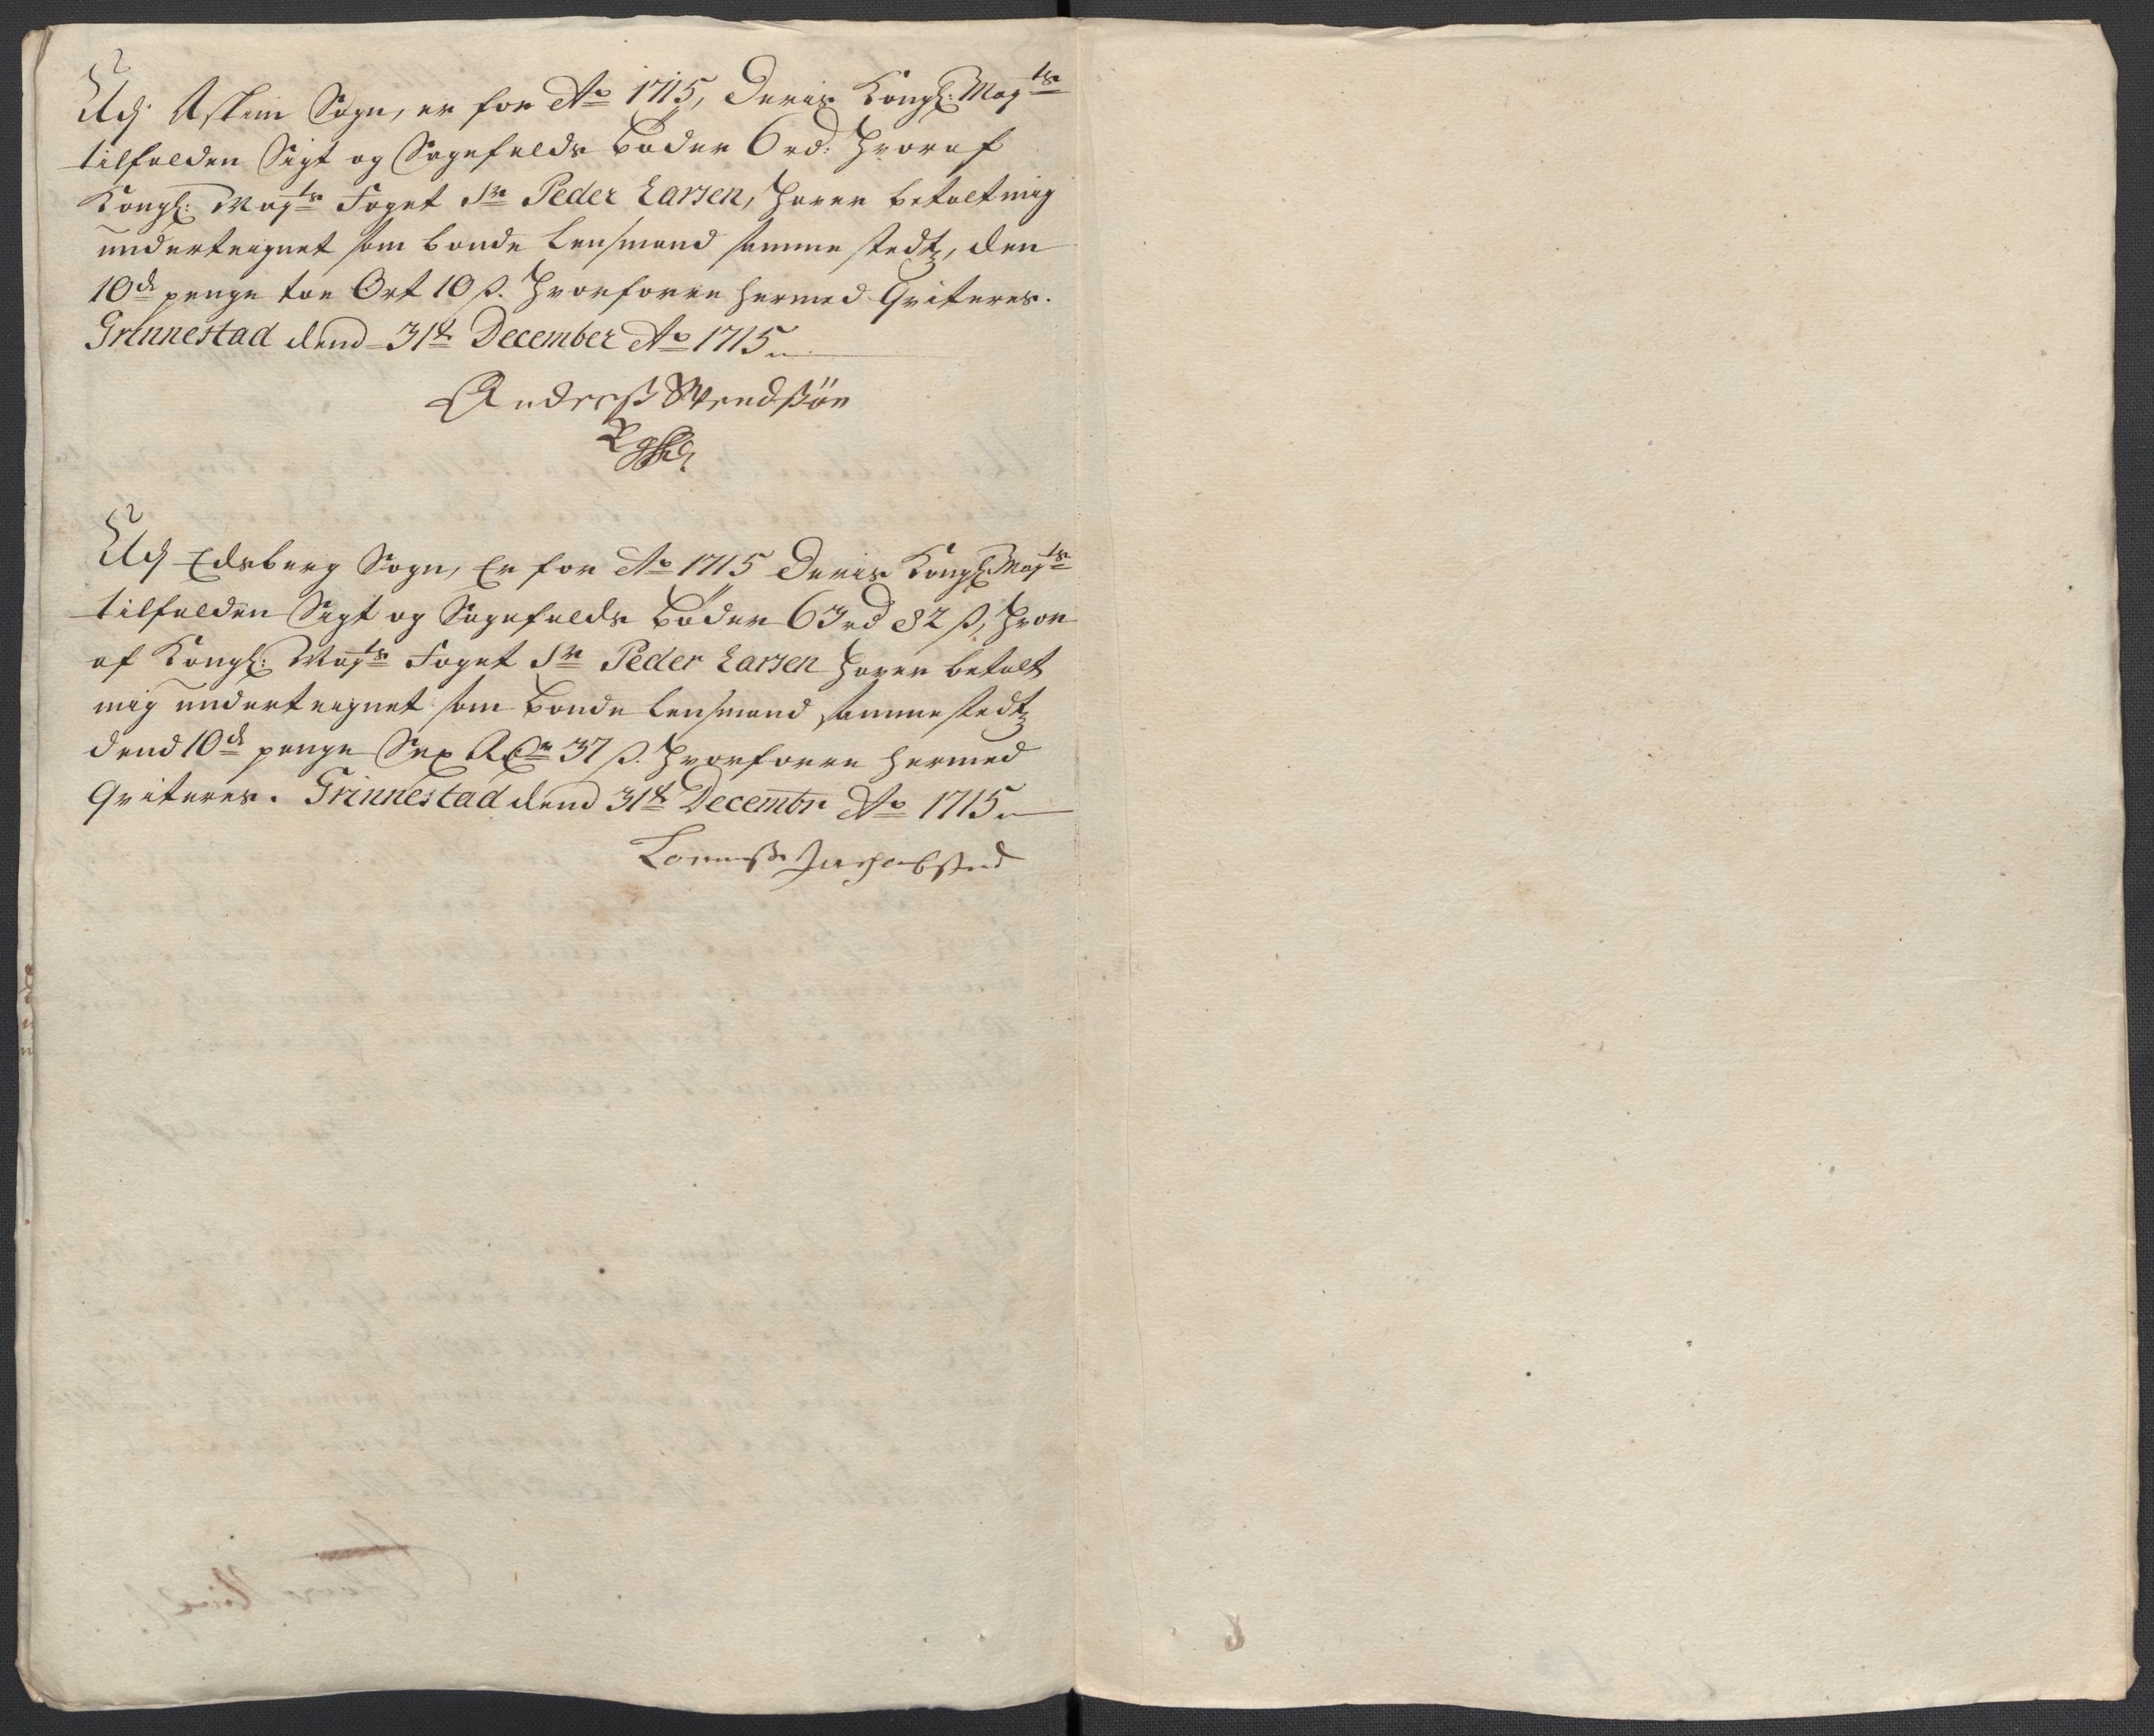 Udj Askim Sogn, er for Ao 1715, Deris Kongl: Mayts
tilfalden Sigt og Sagefalds Bøder 6 rd: Hvoraf
Kongl: Mayts Foget Sr Peder Larsen, haver betalt mig
underteignet som bonde Lensmand samme stedtz, den
10de penge toe Ort 10 ß. Hvorforre hermed Qviteres.
Grinnestad dend 31te December Ao 1715
Anderß Svendßøn
Udj Edsberg Sogn, Er for Ao 1715 Deris Kongl: Mayts
tilfalden Sigt og Sagefalds Bøder 63 rd 82 ß, Hvor
af Kongl: Mayts Foget Sr Peder Larsen haver betalt
mig underteignet som Bonde Lensmand sammestedtz
dend 10de penge Sex Rdr 37 ß. Hvorforre hermed
Qviteres. Grinnestad dend 31te Decembr Ao 1715